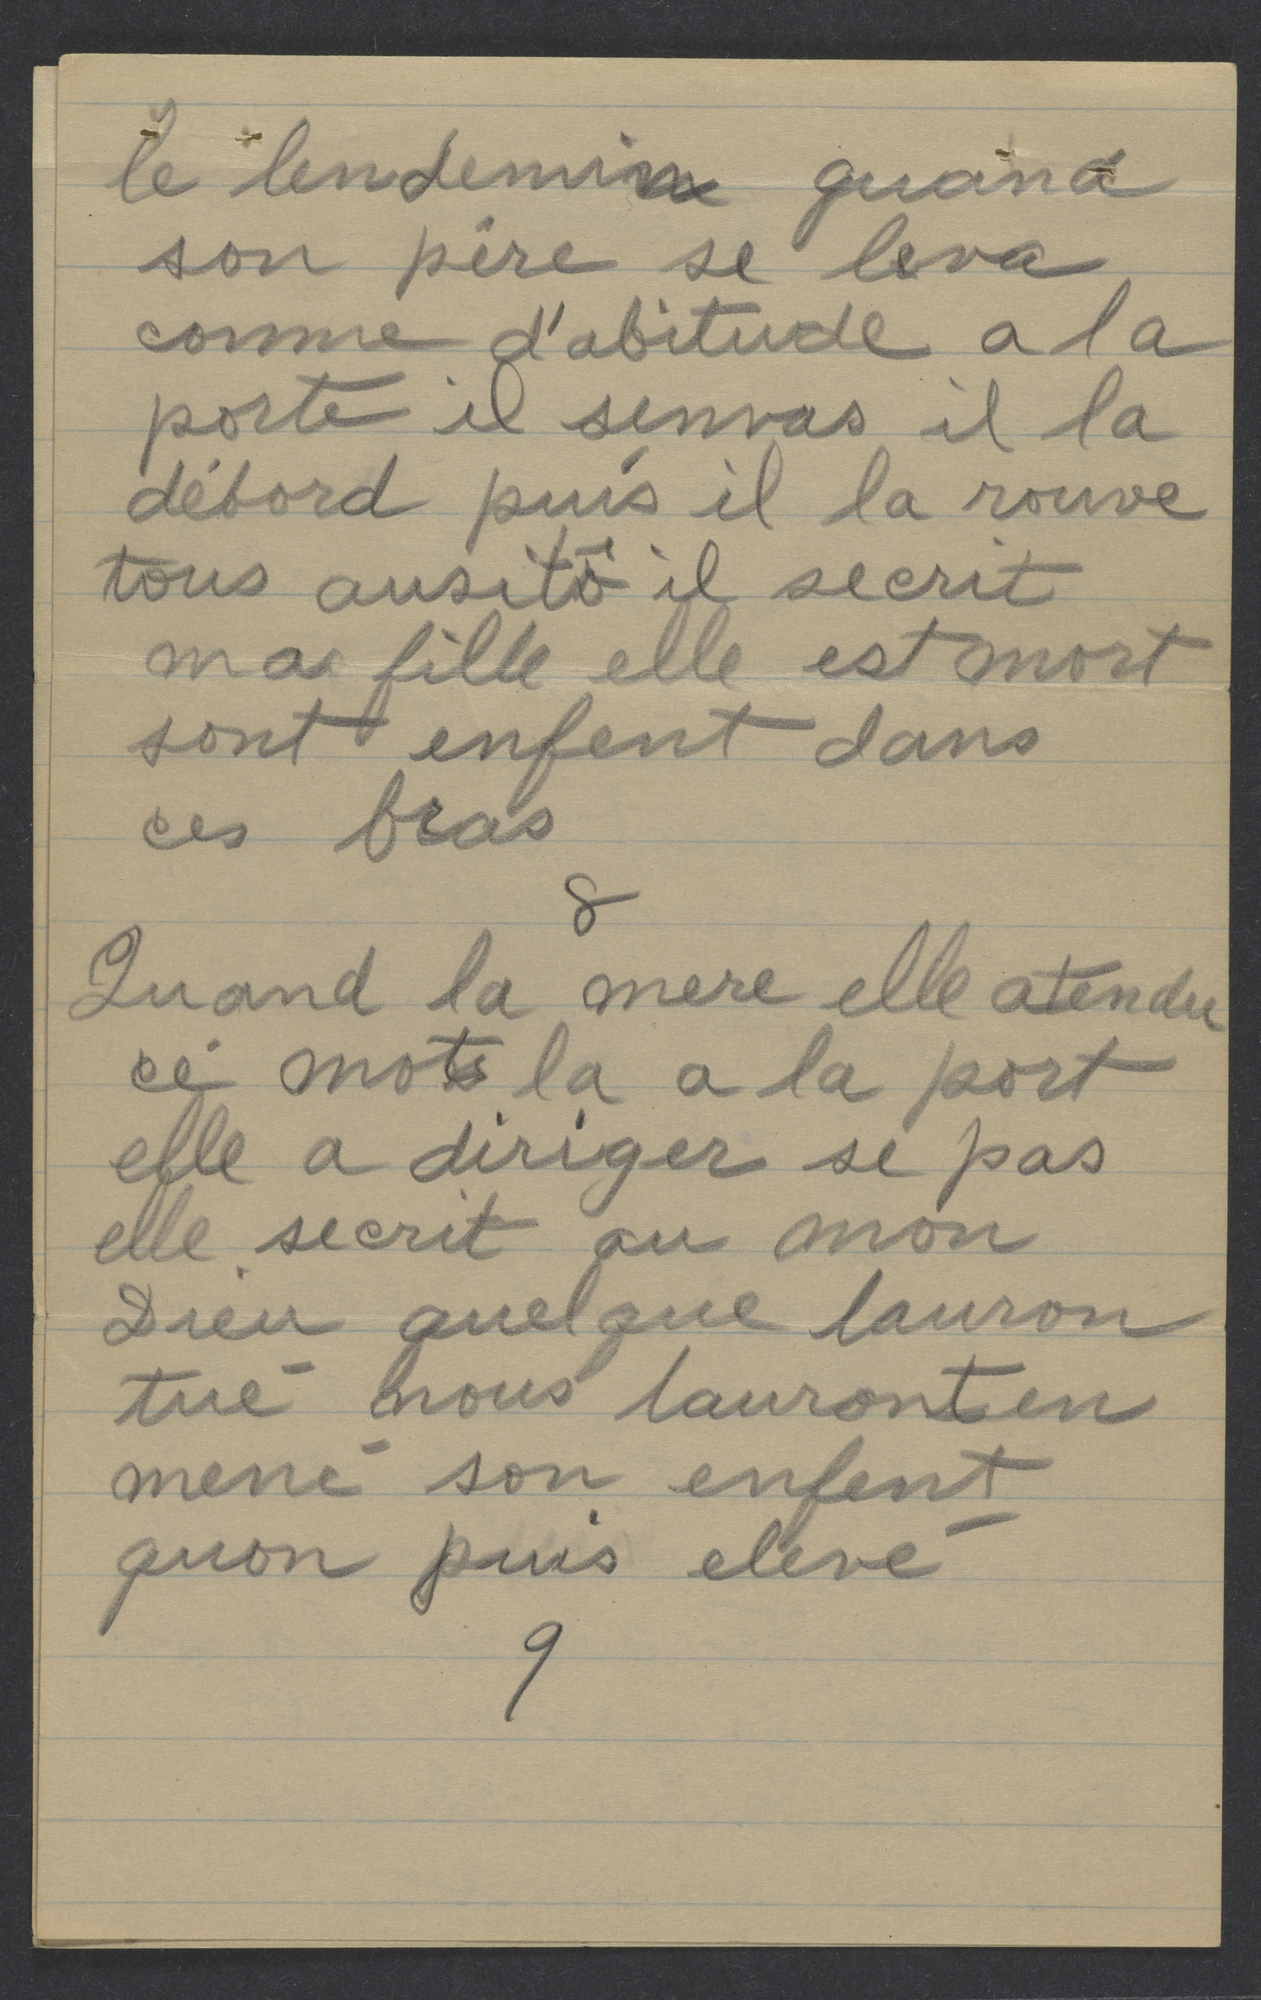 le lendemin quand
son père se leva
comme d'abitude a la
porte il senvas il la
débord puis il la rouve
tous ausitô il secrit
ma fille elle est mort
sont enfent dans
ces bras
8
Quand la mere elle atendu
cé mots la a la port
elle a diriger sé pas
elle secrit au mon
Dieu quelque lauron
tué nous lauront en
mené son enfent
quon puis elevé
9